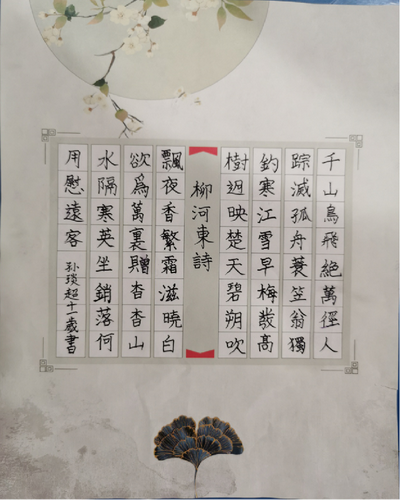 千山鳥飛絶萬徑人
踪滅孤舟蓑笠翁獨
釣寒江雪早梅發高
樹迥映楚天碧朔吹
柳河東詩
飄夜香繁霜滋曉白
欲爲萬裏贈杳杳山
水隔寒英坐銷落何
用慰遠客 孙琰超十一歲書